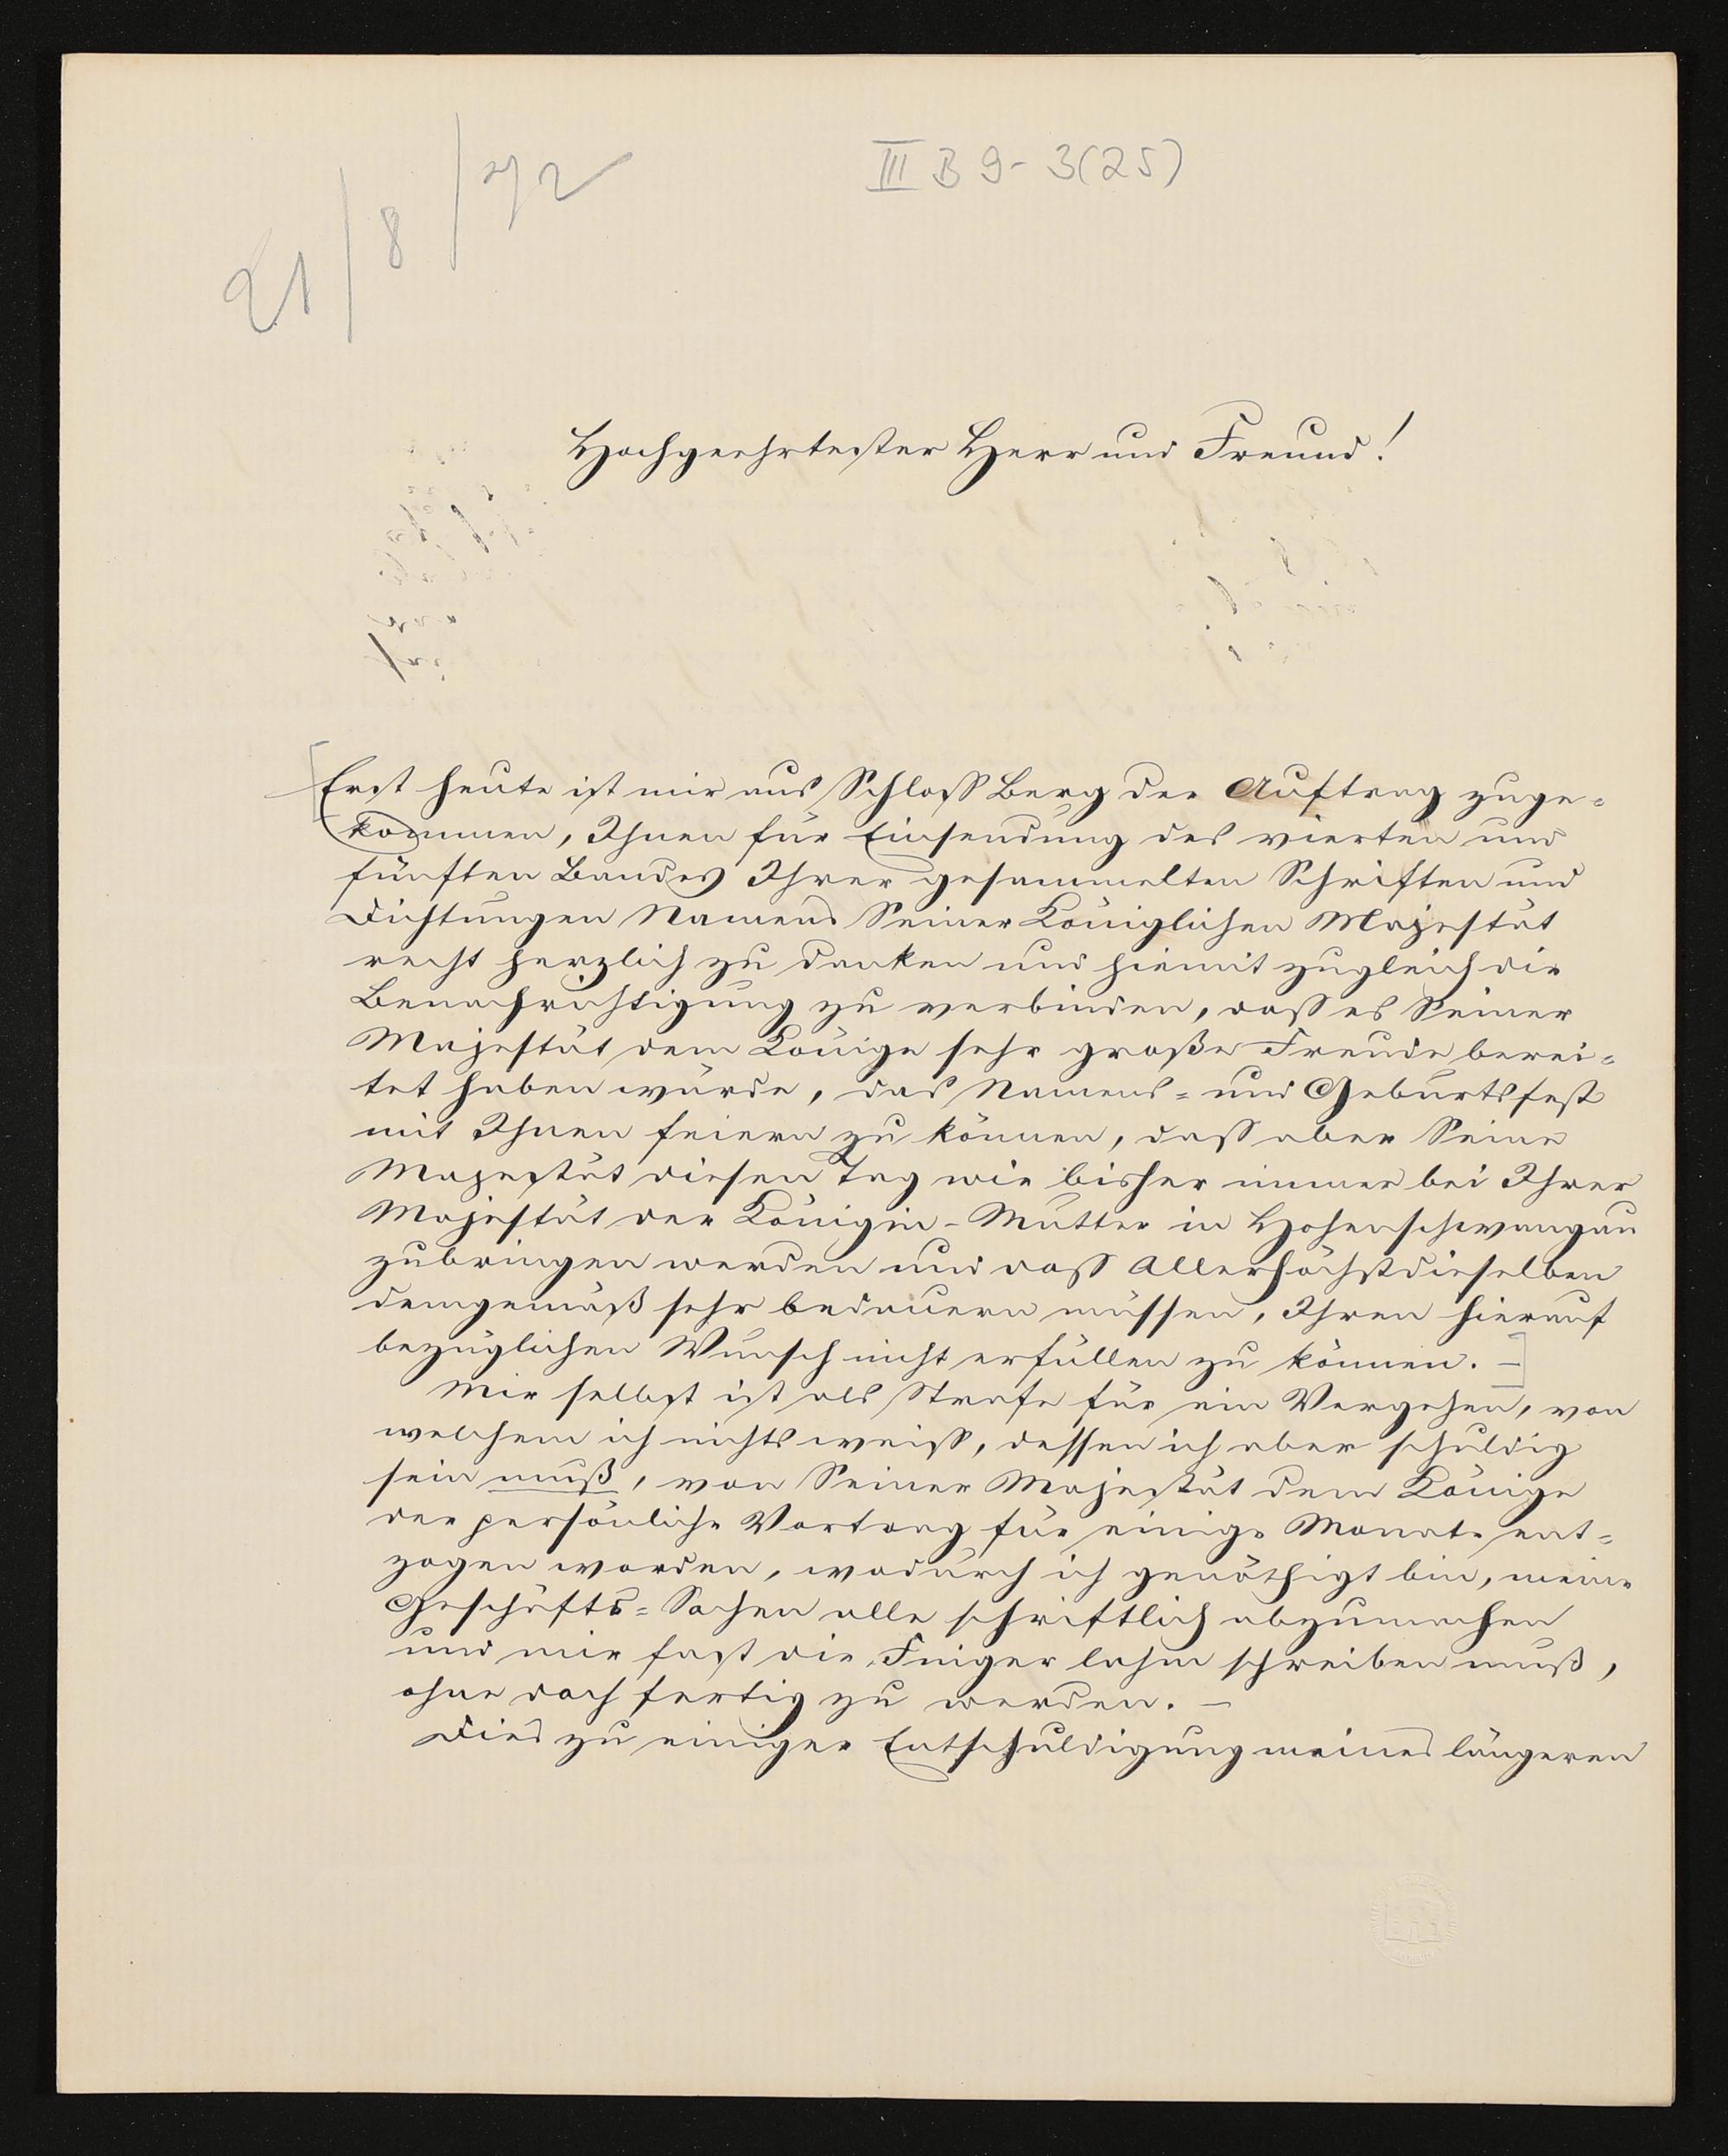 III B 9-3(25)
21/8/72
Hochgeehrtester Herr und Freund!
Erst heute ist mir aus Schloss Berg der Auftrag zuge=
kommen, Ihnen für Einsendung des vierten und
fünften Bandes Ihrer gesammelten Schriften und
Dichtungen Namens Seiner Königlichen Majestät
recht herzlich zu danken und hiemit zugleich die
Benachrichtigung zu verbinden, dass es Seiner
Majestät dem Könige sehr große Freude berei=
tet haben würde, das Namens= und Geburtsfest
mit Ihnen feiern zu können, dass aber Seine
Majestät diesen Tag wie bisher immer bei Ihrer
Majestät der Königin-Mutter in Hohenschwangau
zubringen werden und dass Allerhöchstdieselben
demgemäß sehr bedauern müssen, Ihren hierauf
bezüglichen Wunsch nicht erfüllen zu können. –
Mir selbst ist als Strafe für ein Vergehen, von
welchem ich nichts weiss, dessen ich aber schuldig
sein muß, von Seiner Majestät dem Könige
der persönliche Vortrag für einige Monate ent=
zogen worden, wodurch ich genöthigt bin, meine
Geschäfts=Sachen alle schriftlich abzumachen
und mir fast die Finger lahm schreiben muß,
ohne doch fertig zu werden. –
Dies zu einiger Entschuldigung meines längeren